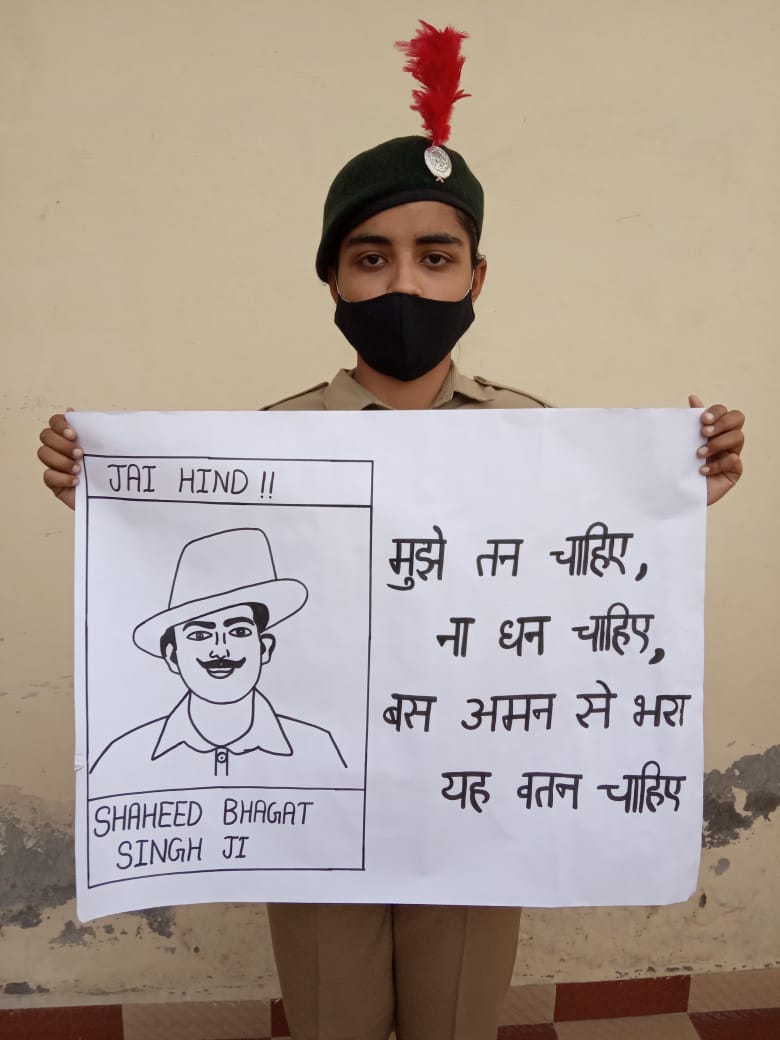 JAI HIND !!
SHAHEED BHAGAT
SINGH JI
मुझे तन चाहिए,
ना धन चाहिए,
बस अमन से भरा
यह वतन चाहिए